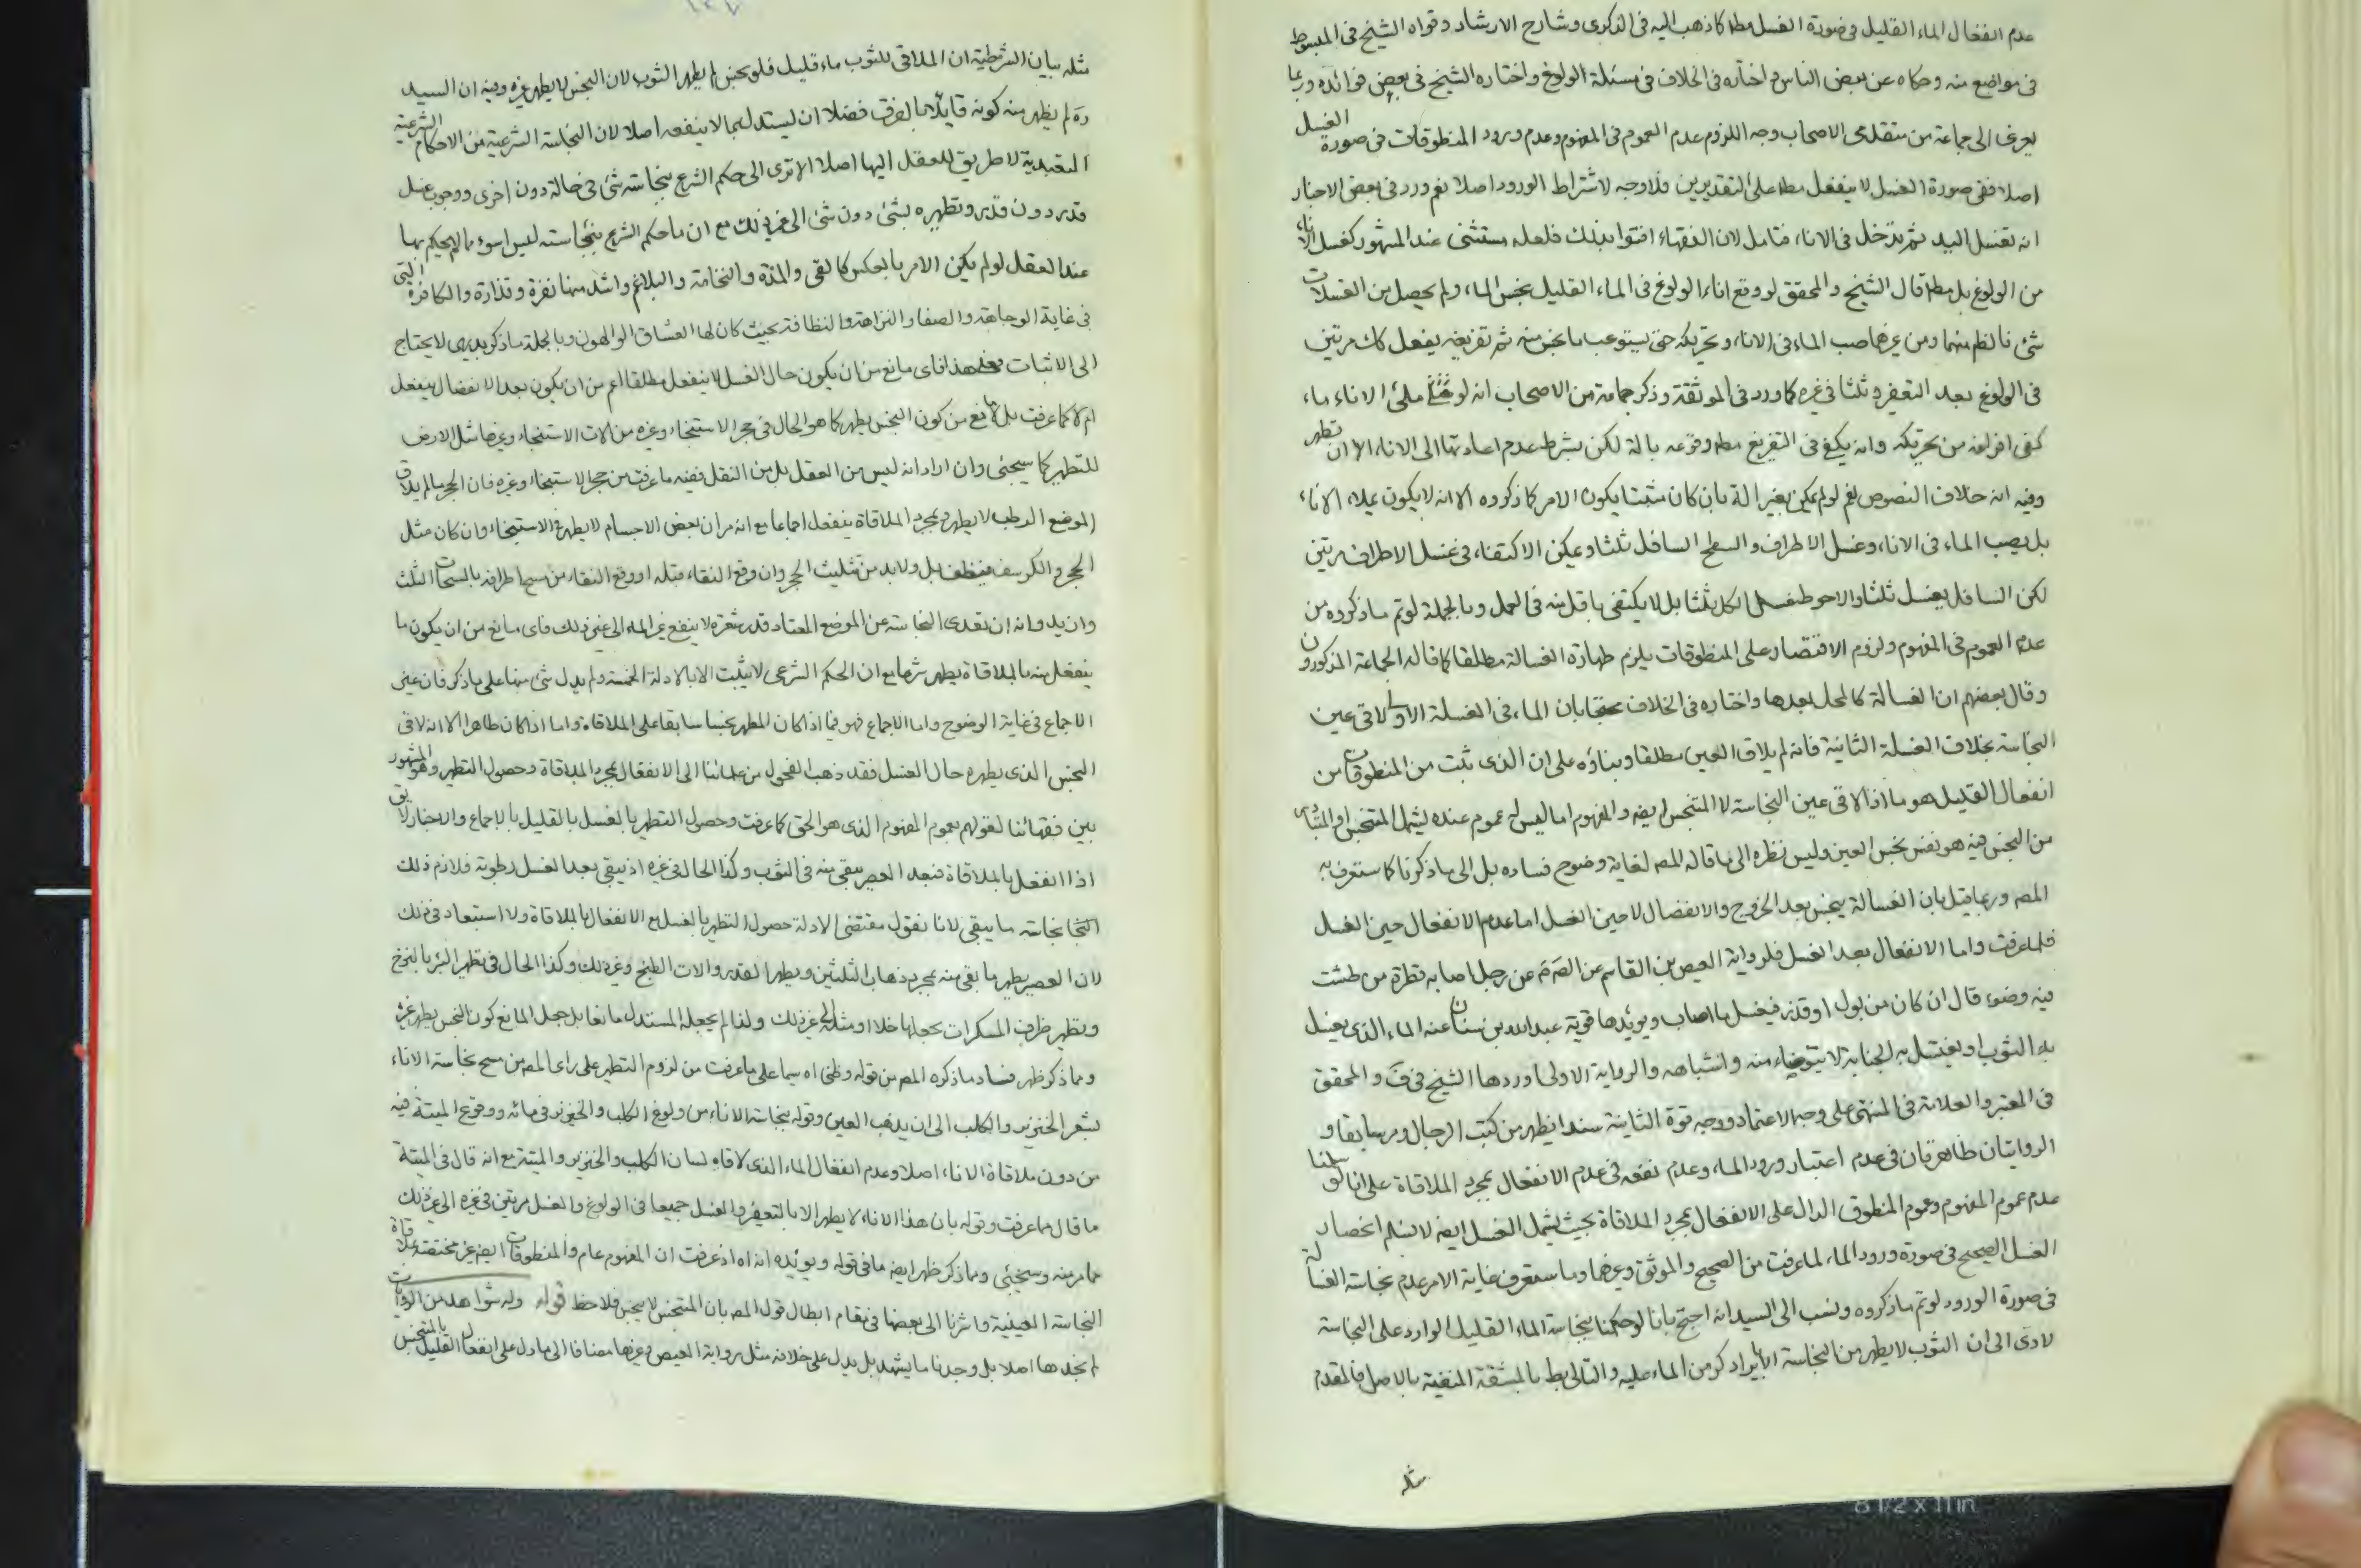 عدم انفعال الماء القليل فى صورة الغسل مطا كما ذهب اليه فى الذكرى وشارح الارشاد وقواه الشيخ فى المبسوط
فى مواضع منه وحكاه عن بعض الناس واختاره فى الخلاف فى مسئلة الولوغ واختاره الشيخ فى بعض فوائده وربما
يعزى الى جماعة من متقدمى الاصحاب وجه اللزوم عدم العموم فى المفهوم وعدم ورود المنطوقات فى صورة الغسل
اصلا ففى صورة الغسل لا ينفعل مطا على التقديرين فلا وجه لاشتراط الورود اصلا نعم ورد فى بعض الاخبار
انه تغسل اليد ثم تدخل فى الاناء فتامل لان الفقهاء افتوا بذلك فلعله مستثنى عند المشهور كغسل الاناء
من الولوغ بل مطا قال الشيخ والمحقق لو وقع اناء الولوغ فى الماء القليل نجس الماء ولم يحصل من الغسلات
شئ فالظم منهما ومن غيرهما صب الماء فى الاناء وتحريكه حتى يستوعب ما نجس منه ثم تفريغه يفعل كك مرتين
فى الولوغ بعد التعفير وثلثا فى غيره كما ورد فى الموثقة وذكر جماعة من الاصحاب انه لو ملئ الاناء ماء
كفى افراغه من تحريكه وانه يكفى فى التفريغ مطا وقوعه بالة لكن بشرط عدم اعادتها الى الاناء الا ان تطهر
وفيه انه خلاف النصوص نعم لو لم يمكن بغير الة بان كان مثبتا يكون الامر كما ذكروه الا انه لا يكون بملاء الاناء
بل يصب الماء فى الاناء وغسل الاطراف والسطح السافل ثلثا ويمكن الاكتفاء فى غسل الاطراف مرتين
لكن السافل يغسل ثلثا والاحوط غسل الكل ثلثا بل لا يكتفى باقل منه فى العمل وبالجملة لو تم ما ذكروه من
عدم العموم فى المفهوم ولزوم الاقتصار على المنطوقات يلزم طهارة الغسالة مطلقا كما قاله الجماعة المذكورون
وقال بعضهم ان الغسالة كالمحل بعدها واختاره فى الخلاف محتجا بان الماء فى الغسلة الاولى لاقى عين
النجاسة بخلاف الغسلة الثانية فانه لم يلاق العين مطلقا وبناؤه على ان الذى ثبت من المنطوقات من
انفعال القليل هو ما اذا لاقى عين النجاسة لا المتنجس ايضه والمفهوم اما ليس له عموم عنده ليشمل المتنجس او المتبادر
من النجس فيه هو نفس نجس العين وليس نظره الى ما قاله المصه لغاية وضوح فساده بل الى ما ذكرنا كما ستعرف به
المصه وربما قيل بان الغسالة ينجس بعد الخروج والانفصال لا حين الغسل اما عدم الانفعال حين الغسل
فلما عرفت واما الانفعال بعد الغسل فلرواية العيص بن القاسم عن الصم عن رجل اصابه قطرة من طشت
فيه وضوء قال ان كان من بول او قذر فيغسل ما اصاب ويؤيدها قوية عبد الله بن سنان عنه الماء الذى يغسل
به الثوب او يغتسل به الجنابة لا يتوضاء منه واشباهه والرواية الاولى اوردها الشيخ فى ف والمحقق
فى المعتبر والعلامة فى المنتهى على وجه الاعتماد ووجه قوة الثانية سندا يظهر من كتب الرجال ومر سابقا و
الروايتان ظاهرتان فى عدم اعتبار ورود الماء وعدم نفعه فى عدم الانفعال بمجرد الملاقاة على انا لو سلمنا
عدم عموم المفهوم وعموم المنطوق الدال على الانفعال بمجرد الملاقاة بحيث يشمل الغسل ايضه لا نسلم انحصار
الغسل الصحيح فى صورة ورود الماء لما عرفت من الصحيح والموثق وغيرهما وما ستعرف غاية الامر عدم نجاسة الغسالة
فى صورة الورود لو تم ما ذكروه ونسب الى السيد انه احتج بانا لو حكمنا بنجاسة الماء القليل الوارد على النجاسة
لادى الى ان الثوب لا يطهر من النجاسة الا بايراد كر من الماء عليه والتالى بط بالمشقة المنفية بالاصل فالمقدم
مثله
مثله بيان الشرطية ان الملاقى للثوب ماء قليل فلو نجس لم يطهر الثوب لان النجس لا يطهر غيره وفيه ان السيد
ره لم يظهر منه كونه قايلا بالفرق فضلا ان يستدل بما لا ينفعه اصلا لان النجاسة الشرعية من الاحكام الشرعية
التعبدية لا طريق للعقل اليها اصلا الا ترى الى حكم الشرع بنجاسة شئ فى حالة دون اخرى ووجوب غسل
قذر دون قذر وتطهيره بشئ دون شئ الى غير ذلك مع ان ما حكم الشرع بنجاسته ليس اسوء مما لم يحكم بها
عند العقل لو لم يكن الامر بالعكس كالقى والمذة والنخامة والبلاغم واشد منها نفرة وقذارة والكافرة التى
فى غاية الوجاهة والصفا والنزاهة والنظافة بحيث كان لها العشاق الوالهون وبالجملة ما ذكر بديهى لا يحتاج
الى الاثبات فعلى هذا فاى مانع من ان يكون حال الغسل لا ينفعل مطلقا اعم من ان يكون بعد الانفصال ينفعل
ام لا كما عرفت بل لا مانع من كون النجس يطهر كما هو الحال فى حجر الاستنجاء وغيره من الات الاستنجاء وغيرها مثل الارض
للتطهير كما سيجئ وان اراد انه ليس من العقل بل من النقل ففيه ما عرفت من حجر الاستنجاء وغيره فان الحجر ما لم يلاق
الموضع الرطب لا يطهر وبمجرد الملاقاة ينفعل اجماعا مع انه مر ان بعض الاجسام لا يطهر فى الاستنجاء وان كان مثل
الحجر والكرسف منظف بل ولا بد من تثليث الحجر وان وقع النقاء قبله او وقع النقاء من مسح اطرافه بالمسحات الثلث
وان يد وانه ان تعدى النجاسة عن الموضع المعتاد قدر شعرة لا ينفع غير الماء الى غير ذلك فاى مانع من ان يكون ما
ينفعل منه بالملاقاة يطهر شرعا مع ان الحكم الشرعى لا يثبت الا بالادلة الخمسة ولم يدل شئ منها على ما ذكر فان غير
الاجماع فى غاية الوضوح واما الاجماع فهو فيما اذا كان المطهر نجسا سابقا على الملاقاة واما اذا كان طاهرا الا انه لاقى
النجس الذى يطهره حال الغسل فقد ذهب الفحول من علمائنا الى الانفعال بمجرد الملاقاة وحصول التطهير وهو المشهور
بين فقهائنا لقولهم بعموم المفهوم الذى هو الحق كما عرفت وحصول التطهير بالغسل بالقليل بالاجماع والاخبار لا يق
اذا انفعل بالملاقاة فبعد العصر يبقى منه فى الثوب وكذا الحال فى غيره اذ يبقى بعد الغسل رطوبة فلازم ذلك
نجاسة ما يبقى لانا نقول مقتضى الادلة حصول التطهير بالغسل مع الانفعال بالملاقاة ولا استبعاد فى ذلك
لان العصير يطهر ما بقى منه بمجرد ذهاب الثلثين ويطهر القدر والات الطبخ وغير ذلك وكذا الحال فى تطهير البئر بالنزح
وتطهير ظرف المسكرات بجعلها خلا او مثله الى غير ذلك ولذا لم يجعله المستدل مانعا بل جعل المانع كون النجس يطهر غيره
ومما ذكر ظهر فساد ما ذكره المصه من قوله وظنى اه سيما على ما عرفت من لزوم التطهير على راى المصه من مسح نجاسة الاناء
بشعر الخنزير والكلب الى ان يذهب العين وقوله بنجاسة الاناء من ولوغ الكلب والخنزير فى مائه ووقوع الميتة فيه
من دون ملاقاة الاناء اصلا وعدم انفعال الماء الذى لاقاه لسان الكلب والخنزير والميتة مع انه قال فى الميتة
ما قال مما عرفت وقوله بان هذا الاناء لا يطهر الا بالتعفير والغسل جميعا فى الولوغ والغسل مرتين فى غيره الى غير ذلك
مما مر منه وسيجئى ومما ذكر ظهر ايضه ما فى قوله ويؤيده انه اه اذ عرفت ان المفهوم عام والمنطوقات ايضه غير مختصة بملاقاة
النجاسة العينية واشرنا الى بعضها فى مقام ابطال قول المصه بان المتنجس لا ينجس فلاحظ قوله وله شواهد من الروايات
لم نجدها اصلا بل وجدنا ما يشهد بل يدل على خلافه مثل رواية العيص وغيرها مضافا الى ما دل على انفعال القليل بالمتنجس
8 1/2 x 11 in